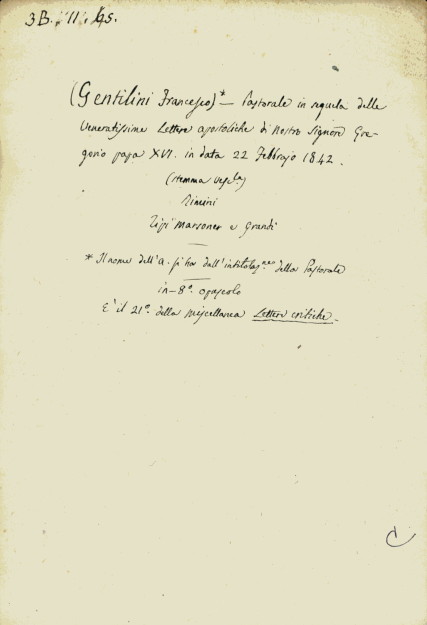 3B. II. 65.
(Gentilini Francesco)* — Pastorale in sequela delle
Veneratissime Lettere apostoliche di Nostro Signore Gre-
gorio papa XVI. in data 22 Febbrajo 1842.
(stemma vesc.la)
Rimini
Tipi Marsoner e Grandi
* Il nome dell'a. si ha dall'intitolaz.ne della Pastorale
in-8°. opuscolo
E' il 21°. della miscellanea Lettere critiche.